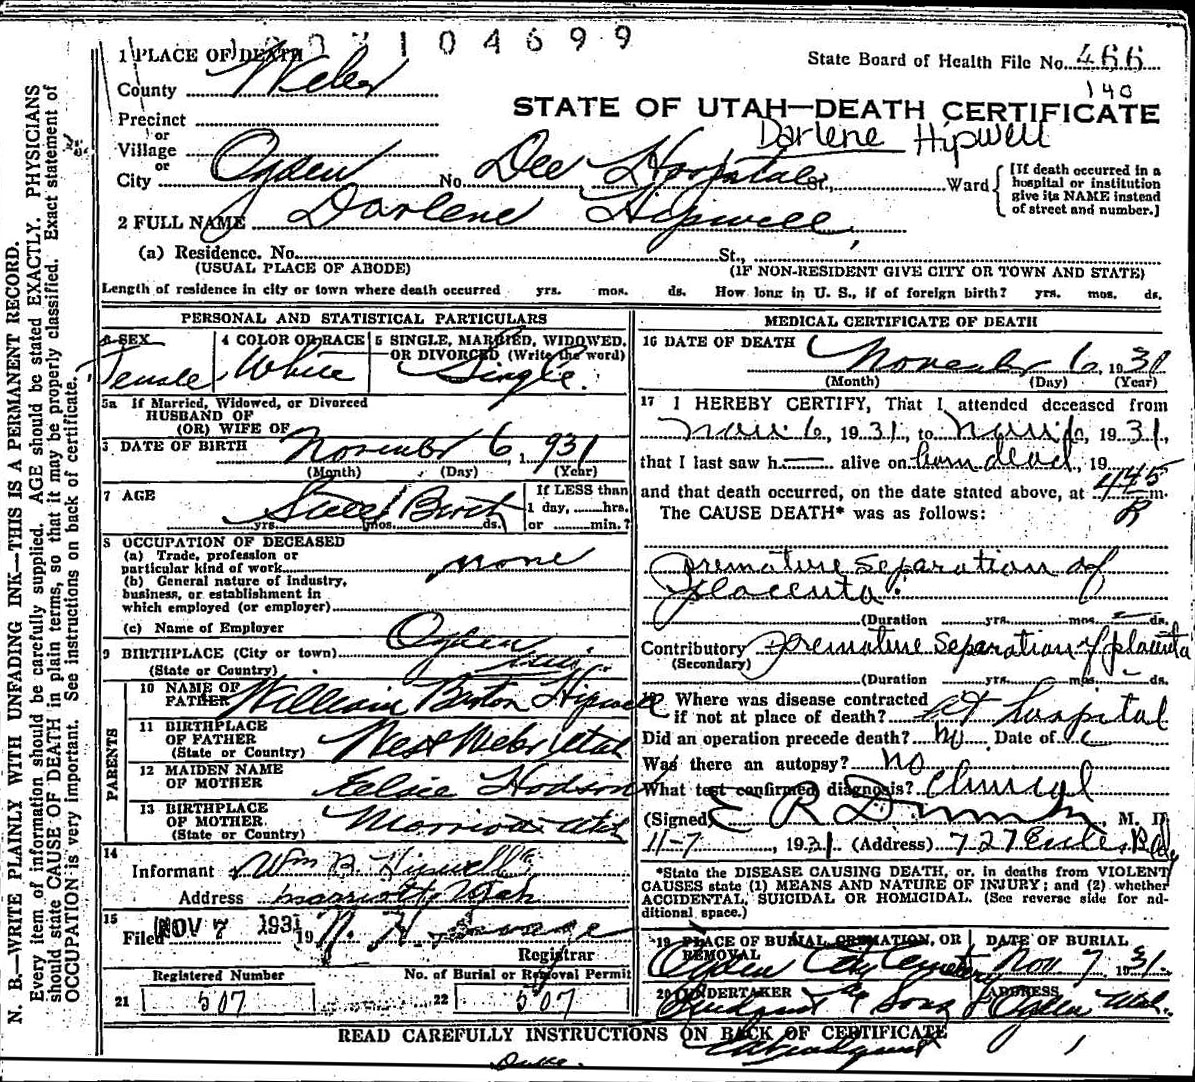 1 PLACE OF DEATH 1003104699
State Board of Health File No. 466
County Weber
140
STATE OF UTAH—DEATH CERTIFICATE
Precinct
Darlene Hipwell
or
Village
or
City Ogden No. Dee Hospital St., Ward
[If death occurred in a
hospital or institution
give its NAME instead
of street and number.]
2 FULL NAME Darlene Hipwell,
(a) Residence. No. St.,
(USUAL PLACE OF ABODE) (IF NON-RESIDENT GIVE CITY OR TOWN AND STATE)
Length of residence in city or town where death occurred yrs. mos. ds. How long in U. S., if of foreign birth? yrs. mos. ds.
PERSONAL AND STATISTICAL PARTICULARS
3 SEX 4 COLOR OR RACE 5 SINGLE, MARRIED, WIDOWED,
OR DIVORCED (Write the word)
Female White Single.
5a If Married, Widowed, or Divorced
HUSBAND OF
(OR) WIFE OF
DATE OF BIRTH November 6, 1931
(Month) (Day) (Year)
7 AGE Steel Birth
yrs. mos. ds.
If LESS than
1 day, hrs.
or min.?
8 OCCUPATION OF DECEASED
(a) Trade, profession or
particular kind of work none
(b) General nature of industry,
business, or establishment in
which employed (or employer)
(c) Name of Employer
9 BIRTHPLACE (City or town) Ogden
(State or Country)
PARENTS
10 NAME OF
FATHER William Burton Hipwell
11 BIRTHPLACE
OF FATHER
(State or Country) West Weber Utah
12 MAIDEN NAME
OF MOTHER Elsie Hodson
13 BIRTHPLACE
OF MOTHER.
(State or Country) Marriott Utah
14
Informant Wm B. Hipwell
Address Marriott, Utah
15
Filed NOV 7 1931 19 Savage
Registrar
Registered Number No. of Burial or Removal Permit
21 507 22 507
MEDICAL CERTIFICATE OF DEATH
16 DATE OF DEATH November 6, 1931
(Month) (Day) (Year)
17 I HEREBY CERTIFY, That I attended deceased from
Nov. 6, 1931, to Nov. 6, 1931,
that I last saw h— alive on born dead, 19
and that death occurred, on the date stated above, at 445 P m.
The CAUSE DEATH* was as follows:
Premature separation of
placenta.
(Duration yrs. mos. ds.
Contributory Premature separation of placenta
(Secondary)
(Duration yrs. mos. ds.
18 Where was disease contracted
if not at place of death? at hospital
Did an operation precede death? no Date of
Was there an autopsy? no
What test confirmed diagnosis? clinical
(Signed) E R , M. D.
11-7, 1931 (Address) 727 Eccles Bldg
*State the DISEASE CAUSING DEATH, or, in deaths from VIOLENT
CAUSES state (1) MEANS AND NATURE OF INJURY; and (2) whether
ACCIDENTAL, SUICIDAL OR HOMICIDAL. (See reverse side for ad-
ditional space.)
19 PLACE OF BURIAL, CREMATION, OR
REMOVAL
DATE OF BURIAL
Ogden City Cemetery Nov 7 1931
20 UNDERTAKER ADDRESS
& Sons Ogden Utah.
READ CAREFULLY INSTRUCTIONS ON BACK OF CERTIFICATE
N. B.—WRITE PLAINLY WITH UNFADING INK—THIS IS A PERMANENT RECORD.
Every item of information should be carefully supplied. AGE should be stated EXACTLY. PHYSICIANS
should state CAUSE OF DEATH in plain terms, so that it may be properly classified. Exact statement of
OCCUPATION is very important. See instructions on back of certificate.